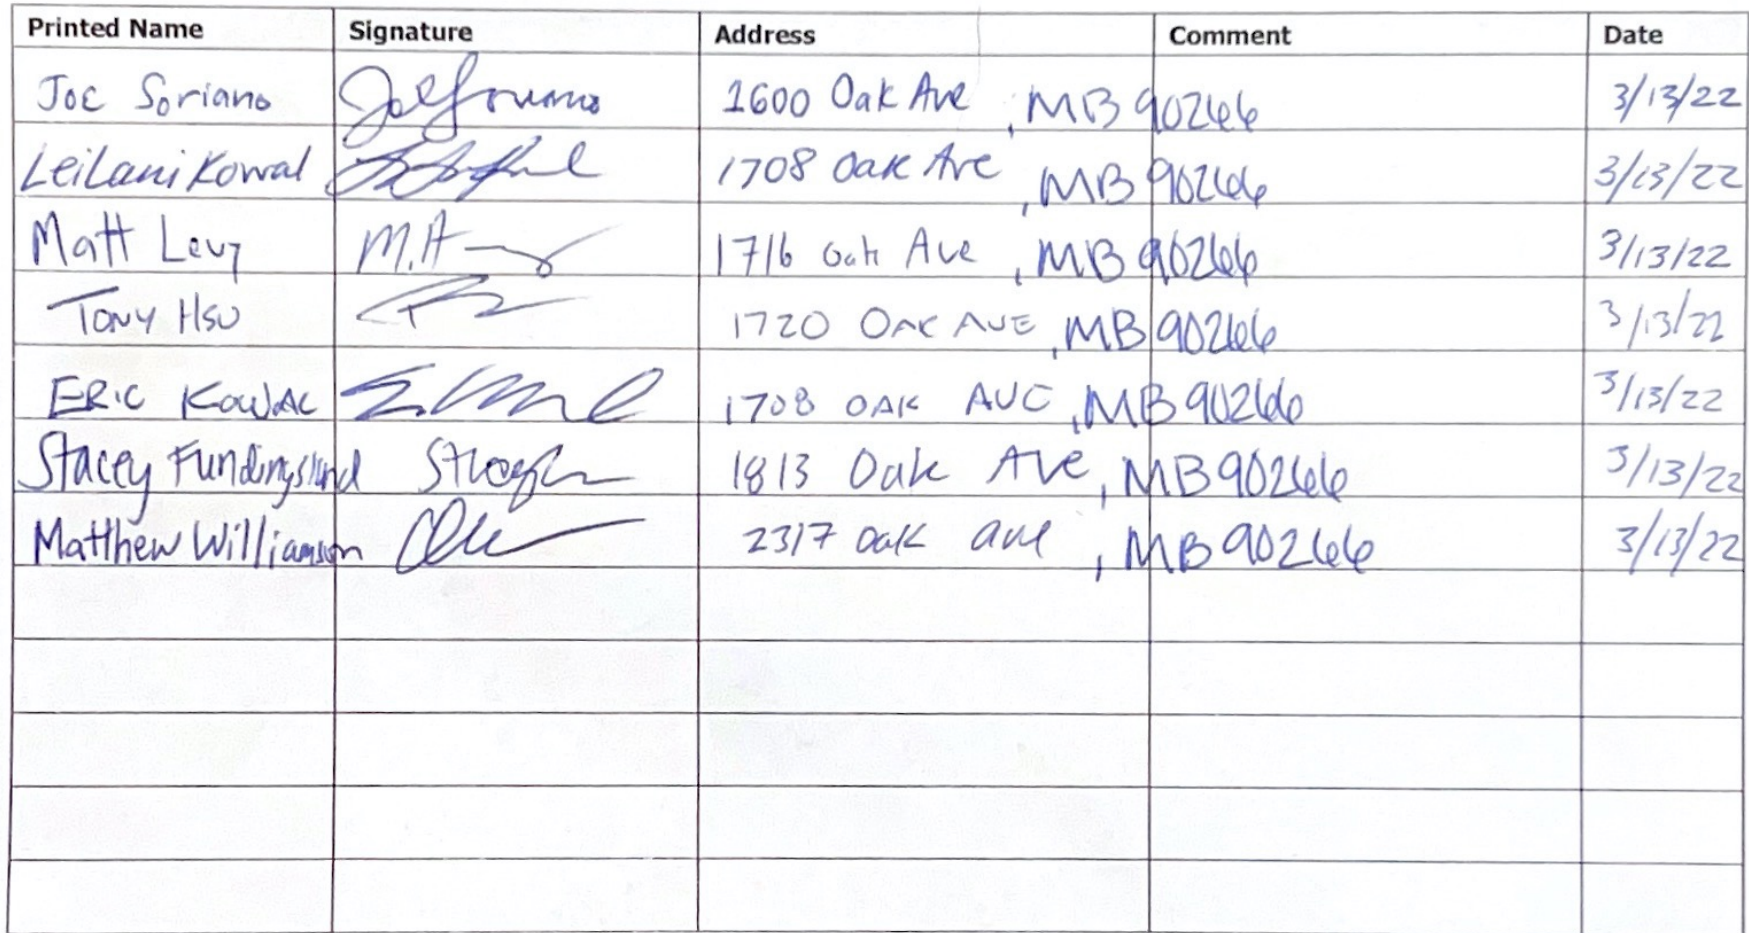 Printed Name Signature Address Comment Date
Joe Soriano Joe Soriano 1600 Oak Ave, MB 90266 3/13/22
Leilani Kowal 1708 Oak Ave, MB 90266 3/13/22
Matt Levy M.A 1716 Oak Ave, MB 90266 3/13/22
Tony Hsu 1720 OAK AVE, MB 90266 3/13/22
ERIC KOWAL 1708 OAK AVE, MB 90266 3/13/22
Stacey Fundingsland 1813 Oak Ave, MB 90266 3/13/22
Matthew Williamson 2317 Oak ave, MB 90266 3/13/22